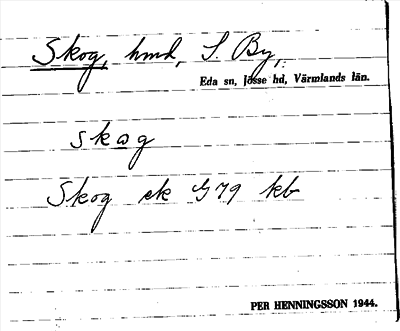 Skog, hmd, S. By,
Eda sn, Jösse hd, Värmlands län.
skog
Skog ek G 79 kb
PER HENNINGSSON 1944.